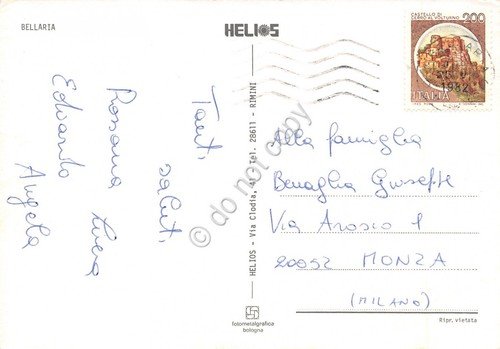 BELLARIA
HELIOS
CASTELLO DI
CERRO AL VOLTURNO
200
ITALIA
1982
Tanti saluti
Rossana Luisa
Edoardo Angela
HELIOS - Via Clodia, 41 - Tel. 28611 - RIMINI
Alla famiglia
Benaglia Giuseppe
Via Arosio 1
20052 MONZA
(MILANO)
fotometalgrafica
bologna
Ripr. vietata
© do not copy